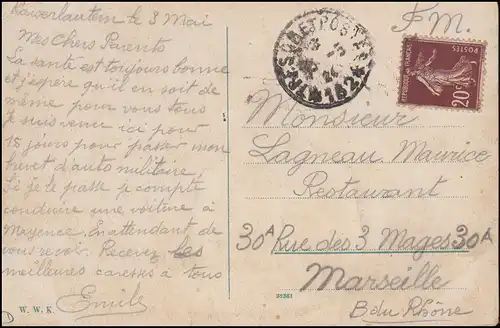 Kaiserlautern le 3 Mai
Mes Chers Parents
La santé est toujours bonne
et j'espère qu'il en soit de
même pour vous tous
Je suis venu ici pour
15 jours pour passer mon
brevet d'auto militaire,
Si je le passe je compte
conduire une voiture à
Mayence. En attendant de
vous revoir. Recevez les
meilleures caresses à tous
Emile
W. W. K.
F.M.
POSTES
REPUBLIQUE FRANÇAISE
20c
Monsieur
Lagneau Maurice
Restaurant
30A Rue des 3 Mages 30A
Marseille
B du Rhône